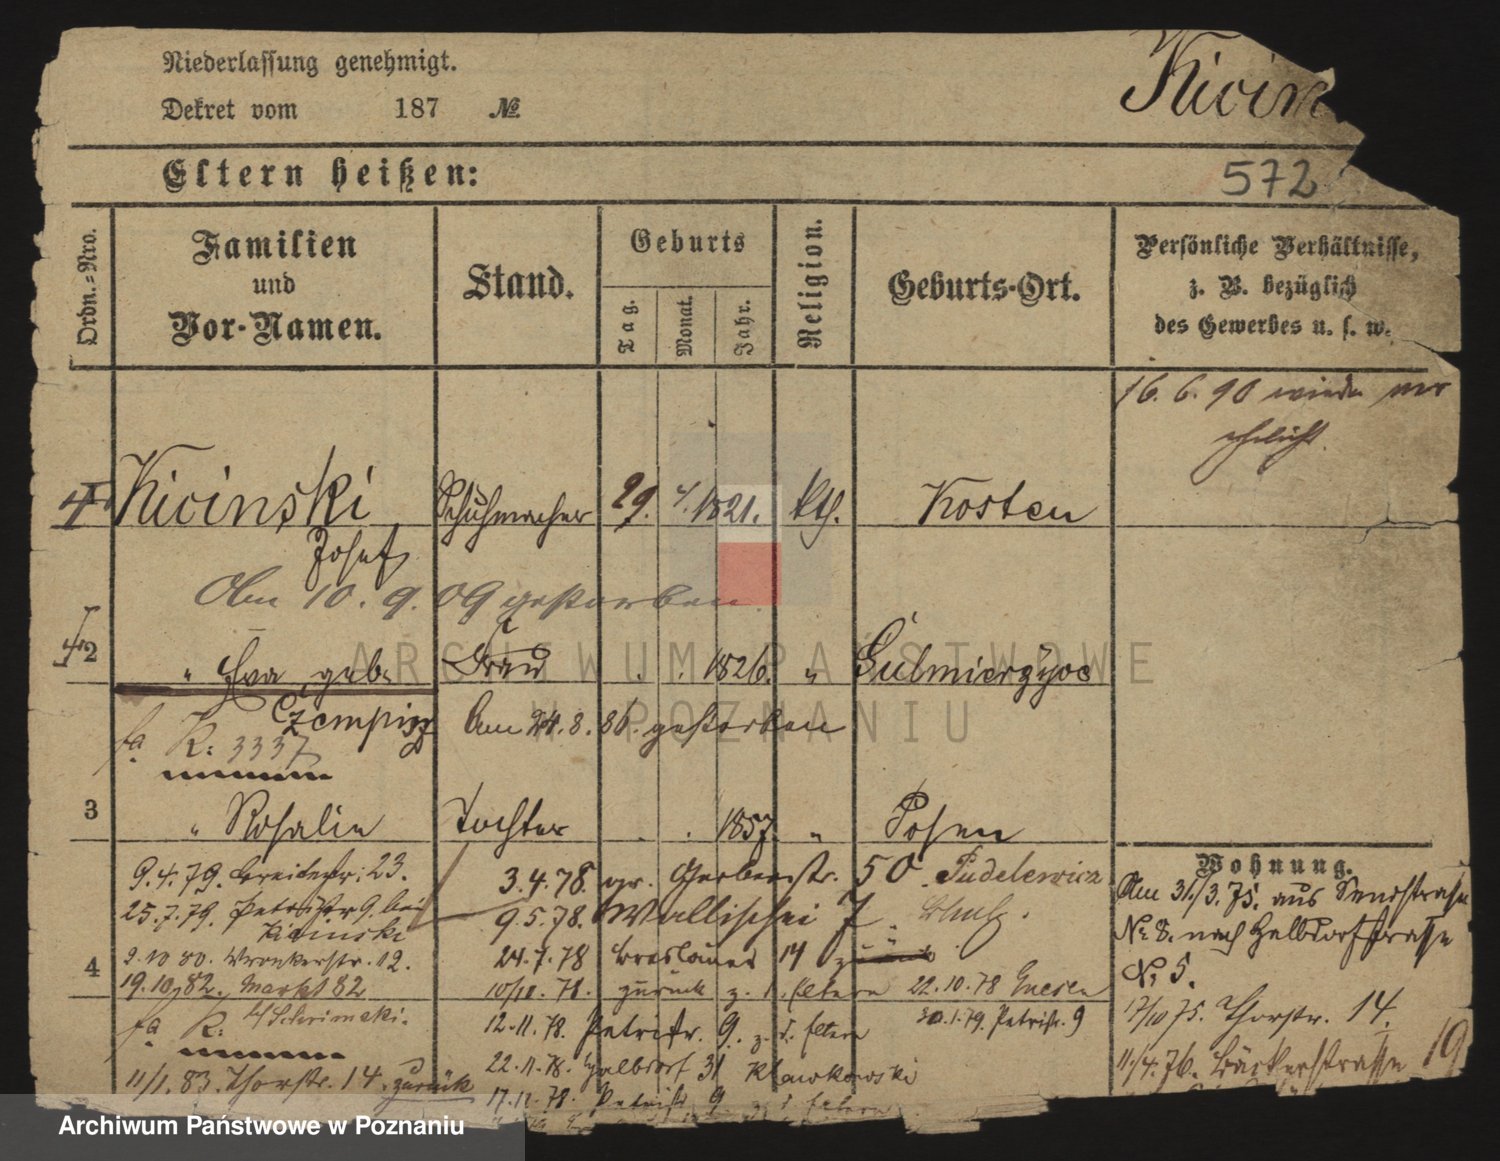 Niederlassung genehmigt.
Dekret vom 187 №
Kicin
572
Eltern heißen:
Ordn.-Nro.
Familien
und
Vor-Namen.
Stand.
Geburts
Tag.
Monat.
Jahr.
Religion.
Geburts-Ort.
Persönliche Verhältnisse,
z. B. bezüglich
des Gewerbes u. s. w.
16. 6. 90 wieder ver
ehelicht.
Kicinski Schuhmacher 29. 4. 1821. kth. Kosten
Josef
Am 10. 9. 09 gestorben.
2 " Eva geb. Frau . . 1826. "
Am 24. 8. 86. gestorben
fa K: 3337
3 " Rosalie Tochter . . 1857. " Posen
Wohnung.
Am 31./3. 75. aus
No 8. nach Halbdorfstrasse
No 5.
17/10 75. Thorstr. 14.
11/4. 76. Bäckerstrasse 19
9. 4. 79. Breitestr: 23.
25. 7. 79. Petristr 9. bei
Kicinski
9. 10 80. Wronkerstr. 12.
4
19. 10. 82. Markt 82
fa K:
11/1. 83. Thorstr. 14. zurück
3. 4. 78. gr. Gerberstr. 50. Pudelewicz
9. 5. 78. Wallischei 7
24. 7. 78 Breslauer 14
10/10. 78. zurück z. d. Eltern 22. 10. 78 Gnesen
12. 11. 78. Petristr. 9. z. d. Eltern 30. 1. 79. Petristr. 9
22. 11. 78. Halbdorf 31
17. 12. 78. Petristr 9 z. d. Eltern
ARCHIWUM PAŃSTWOWE
W POZNANIU
Archiwum Państwowe w Poznaniu